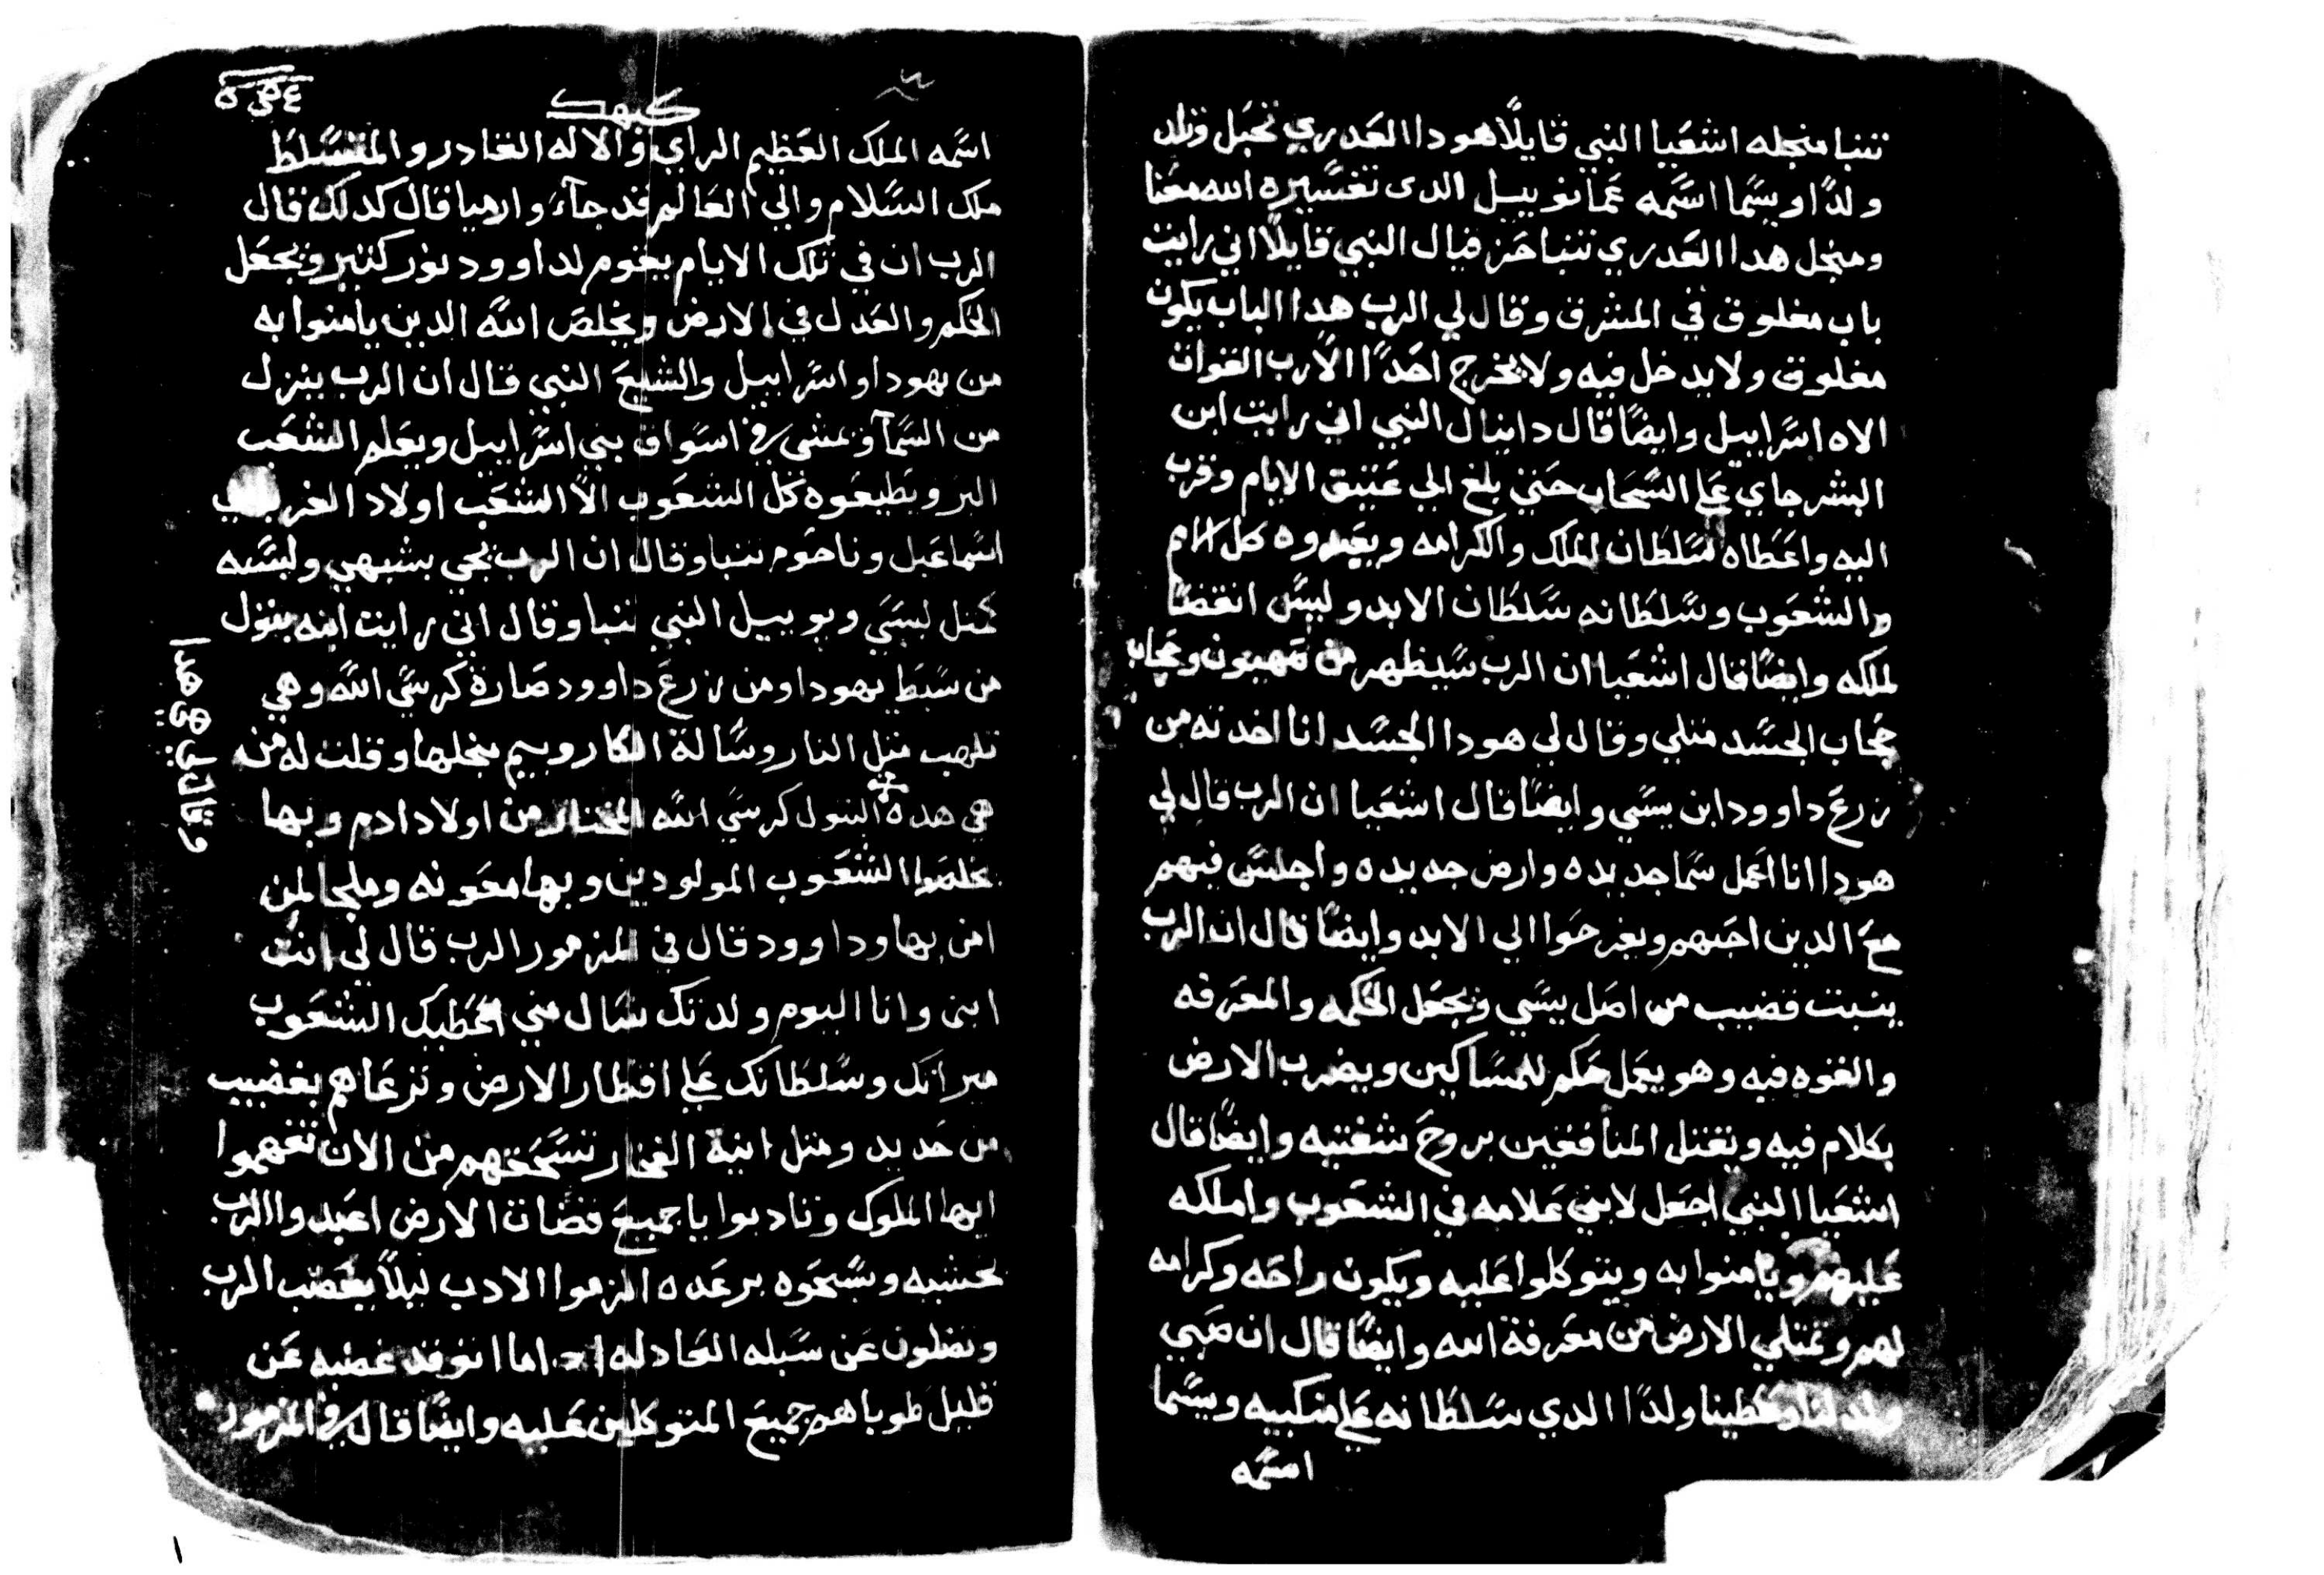 تنبا منجله اشعيا النبي قايلا هودا العدري تحبل وتلد
ولدا ويسما اسمه عمانوييل الدى تفسيره الله معنا
ومنجل هدا العدري تنبا حزقيال النبي قايلا اني رايت
باب مغلوق في المشرق وقال لي الرب هدا الباب يكون
مغلوق ولا يدخل فيه ولا يخرج احدا الا رب القوات
الاه اسراييل وايضا قال دانيال النبي اني رايت ابن
البشر جاي على السحاب حتي بلغ الي عتيق الايام وقرب
اليه واعطاه سلطان الملك والكرامه ويعبدوه كل الامم
والشعوب وسلطانه سلطان الابد وليس انقضا
لملكه وايضا قال اشعيا ان الرب سيظهر من صهيون وحجاب
حجاب الجسد مثلي وقال لي هودا الجسد انا اخدته من
زرع داوود ابن يسي وايضا قال اشعيا ان الرب قال لي
هودا انا اعمل سما جديده وارض جديده واجلس فيهم
مع الدين احبهم ويفرحوا الي الابد وايضا قال ان الرب
ينبت قضيب من اصل يسي ويجعل الحكمه والمعرفه
والقوه فيه وهو يعمل حكم للمساكين ويضرب الارض
بكلام فيه ويقتل المنافقين بروح شفتيه وايضا قال
اشعيا النبي اجعل لابني علامه في الشعوب واملكه
عليهم ويامنوا به ويتوكلوا عليه ويكون راحه وكرامه
لهم وتمتلي الارض من معرفة الله وايضا قال ان صبي
ولد لنا وعطينا ولدا الدي سلطانه على منكبيه ويسما
اسمه
كيهك
اسمه الملك العظيم الراي والاله القادر والمتسلط
ملك السلام والي العالم قد جآء وارميا قال كدلك قال
الرب ان في تلك الايام يقوم لداوود نور كثير ويجعل
الحكم والعدل في الارض ويخلص الله الدين يامنوا به
من يهودا واسراييل واليشع النبي قال ان الرب ينزل
من السمآ ويمشى في اسواق بني اسراييل ويعلم الشعب
البر ويطيعوه كل الشعوب الا الشعب اولاد
اسماعيل وناحوم تنبا وقال ان الرب يجي بشبهي ولبسه
كمثل لبسي ويوييل النبي تنبا وقال اني رايت ابنه بتول
من سبط يهودا ومن زرع داوود صارة كرسي الله وهي
تلهب مثل النار وسالة الكاروبيم منجلها وقلت له من
هي هده البتول كرسي الله المختاره من اولاد ادم وبها
يخلصوا الشعوب المولودين وبها معونه وملجا لمن
امن بها وداوود قال في المزمور الرب قال لي انت
ابنى وانا اليوم ولدتك سال مني اعطيك الشعوب
ميراتك وسلطانك على اقطار الارض وترعاهم بقضيب
من حديد ومثل انية الفخار تسحقهم من الان تفهموا
ايها الملوك وتادبوا يا جميع قضات الارض اعبدوا الرب
بخشيه وسبحوه برعده الزموا الادب ليلا يغضب الرب
وتضلون عن سبله العادله ادا ما اتوقد غضبه عن
قليل طوباهم جميع المتوكلين عليه وايضا قال في المزمور
وقال لي هي هدا